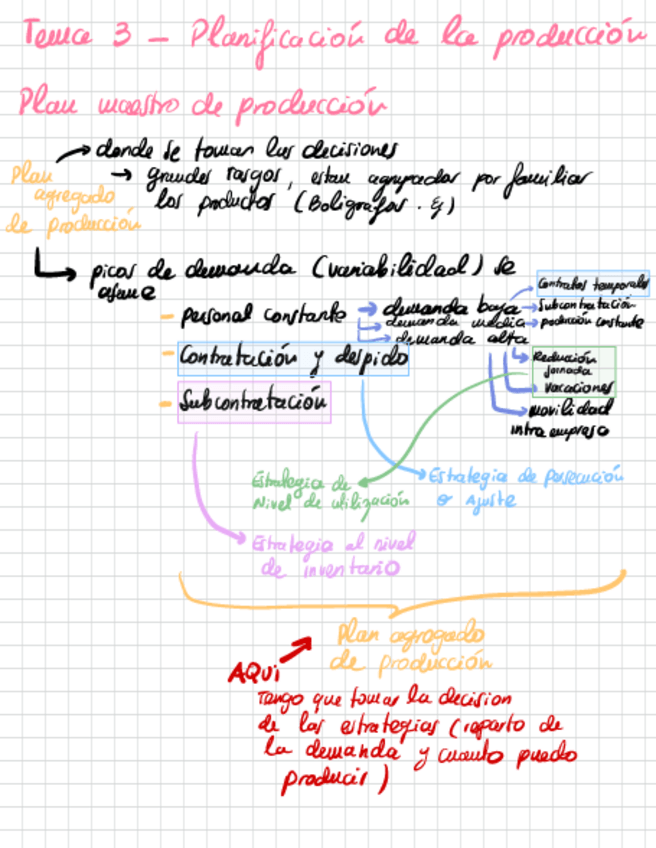 Tema 3 - Planificación de la producción
Plan maestro de producción
→ donde se toman las decisiones
Plan agregado de producción
→ grandes rasgos, estan agrupados por familias
los productos (Boligrafos. Ej)
→ picos de demanda (variabilidad) se
asume
- personal constante → demanda baja
→ demanda media → producción constante
→ demanda alta
Contratos temporales
Subcontratación
- Contratación y despido
Reducción
jornada
vacaciones
- Subcontratación
movilidad
intraempresa
Estrategia de
Nivel de utilización
Estrategia de persecución
o Ajuste
Estrategia al nivel
de inventario
Plan agregado
de producción
AQUI
Tengo que tomar la decision
de las estrategias (reparto de
la demanda y cuanto puedo
producir)